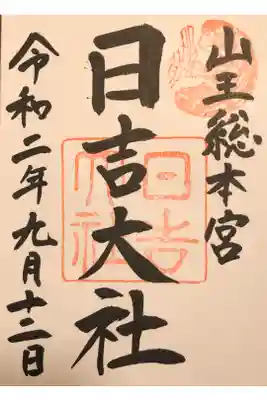 山王総本宮
日吉大社
令和二年九月十二日
日吉
大社